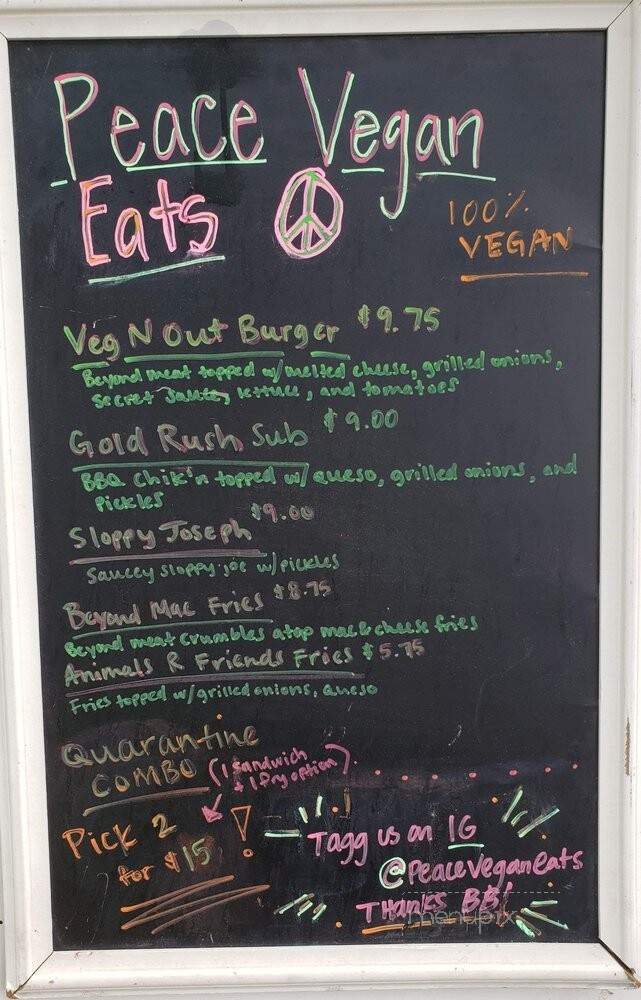 Peace Vegan
Eats
100%
VEGAN
Veg N Out Burger $9.75
Beyond meat topped w/ melted cheese, grilled onions,
secret sauce, lettuce, and tomatoes
Gold Rush Sub $9.00
BBQ Chik'n topped w/ queso, grilled onions, and
pickles
Sloppy Joseph $9.00
Saucey sloppy joe w/ pickles
Beyond Mac Fries $8.75
Beyond meat crumbles atop mac & cheese fries
Animals R Friends Fries $5.75
Fries topped w/ grilled onions, queso
Quarantine
COMBO (1 sandwich
+ 1 Fry option)
Pick 2 !
for $15
Tagg us on IG
@PeaceVeganEats
THanks BB!
menupix